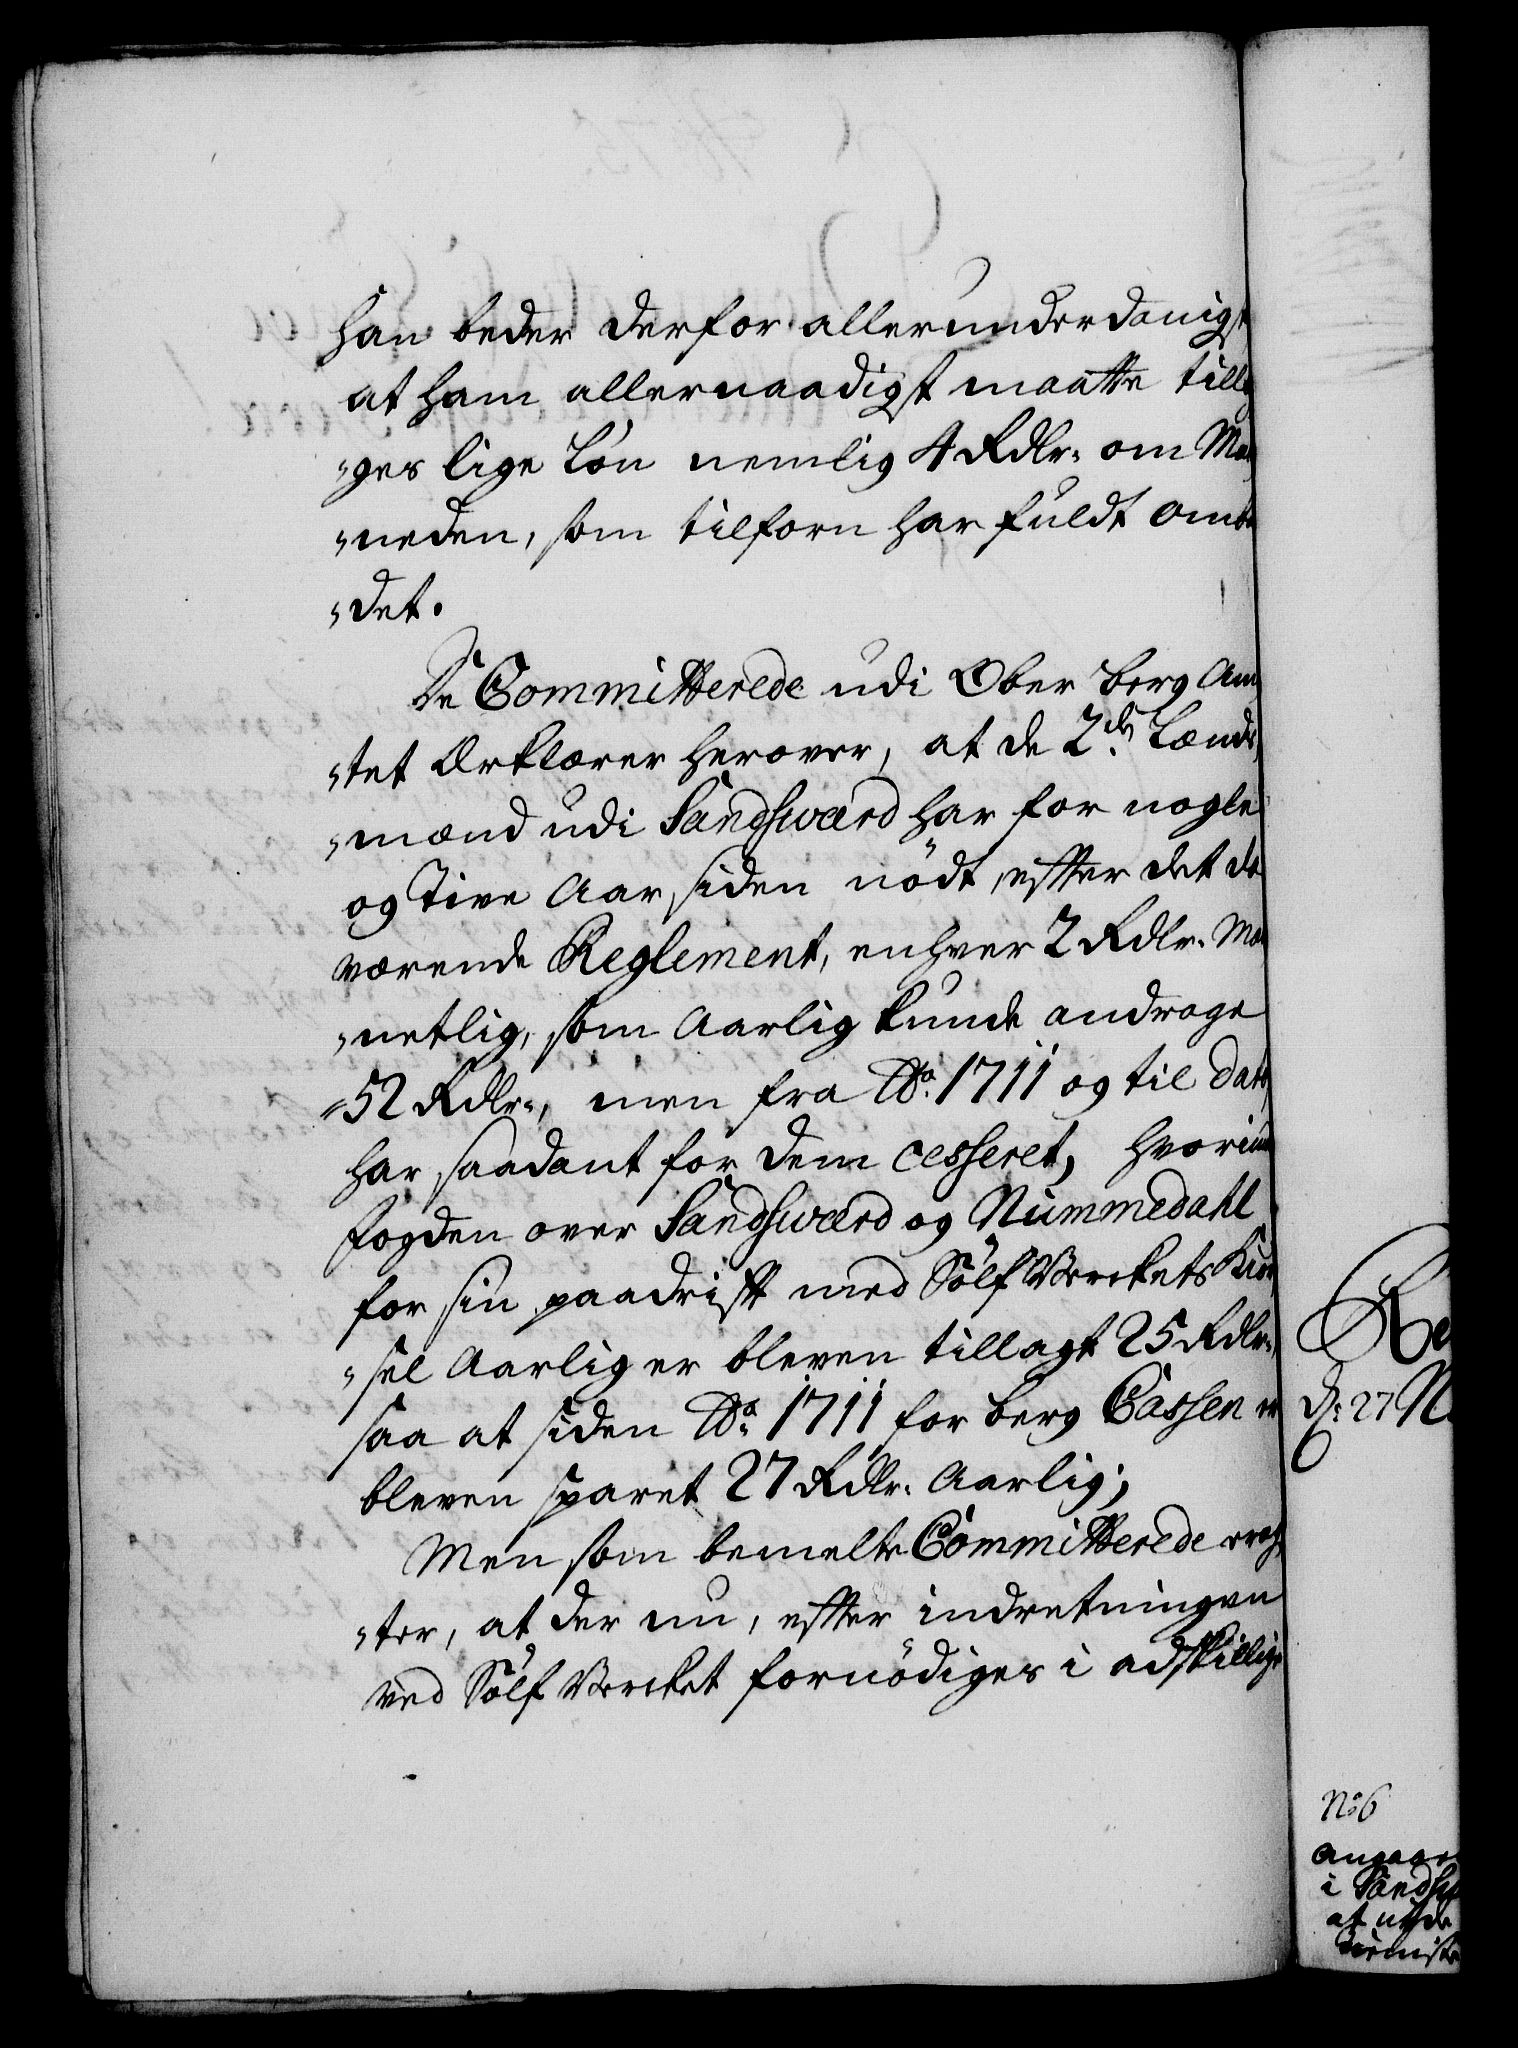 han beder derfor allerunderdanigst
at ham allernaadigst maatte tillæ
„ges lige Løn nemlig 4 Rdlr: om Maa
„neden, som tilforn har fuldt Ombu
„det.
De Committerede udi Ober Berg Am
„tet Erklærer herover, at de 2de Lænds
„mænd udi Sandsværd har for nogle
og Tive Aar siden nödt, efter det da
værende Reglement, enhver 2 Rdlr. Maa
„netlig, som Aarlig kunde androge
52 Rdlr:, men fra Ao: 1711 og til dato
har saadant for dem cesseret, hvorimod
fogden over Sandsværd og Nummedahl
for sin paadrift med Sölf Verckets Kiør
„sel Aarlig er bleven tillagt 25 Rdlr:,
saa at siden Ao: 1711 for Berg Cassen er
bleven sparet 27 Rdlr. Aarlig;
Men som bemelte Committerede erag
„ter, at der nu, efter indretningen
ved Sölf Vercket fornödiges i adskillige
Re
D: 27 N
No 6
Angaae
i Sandsv
at nyde